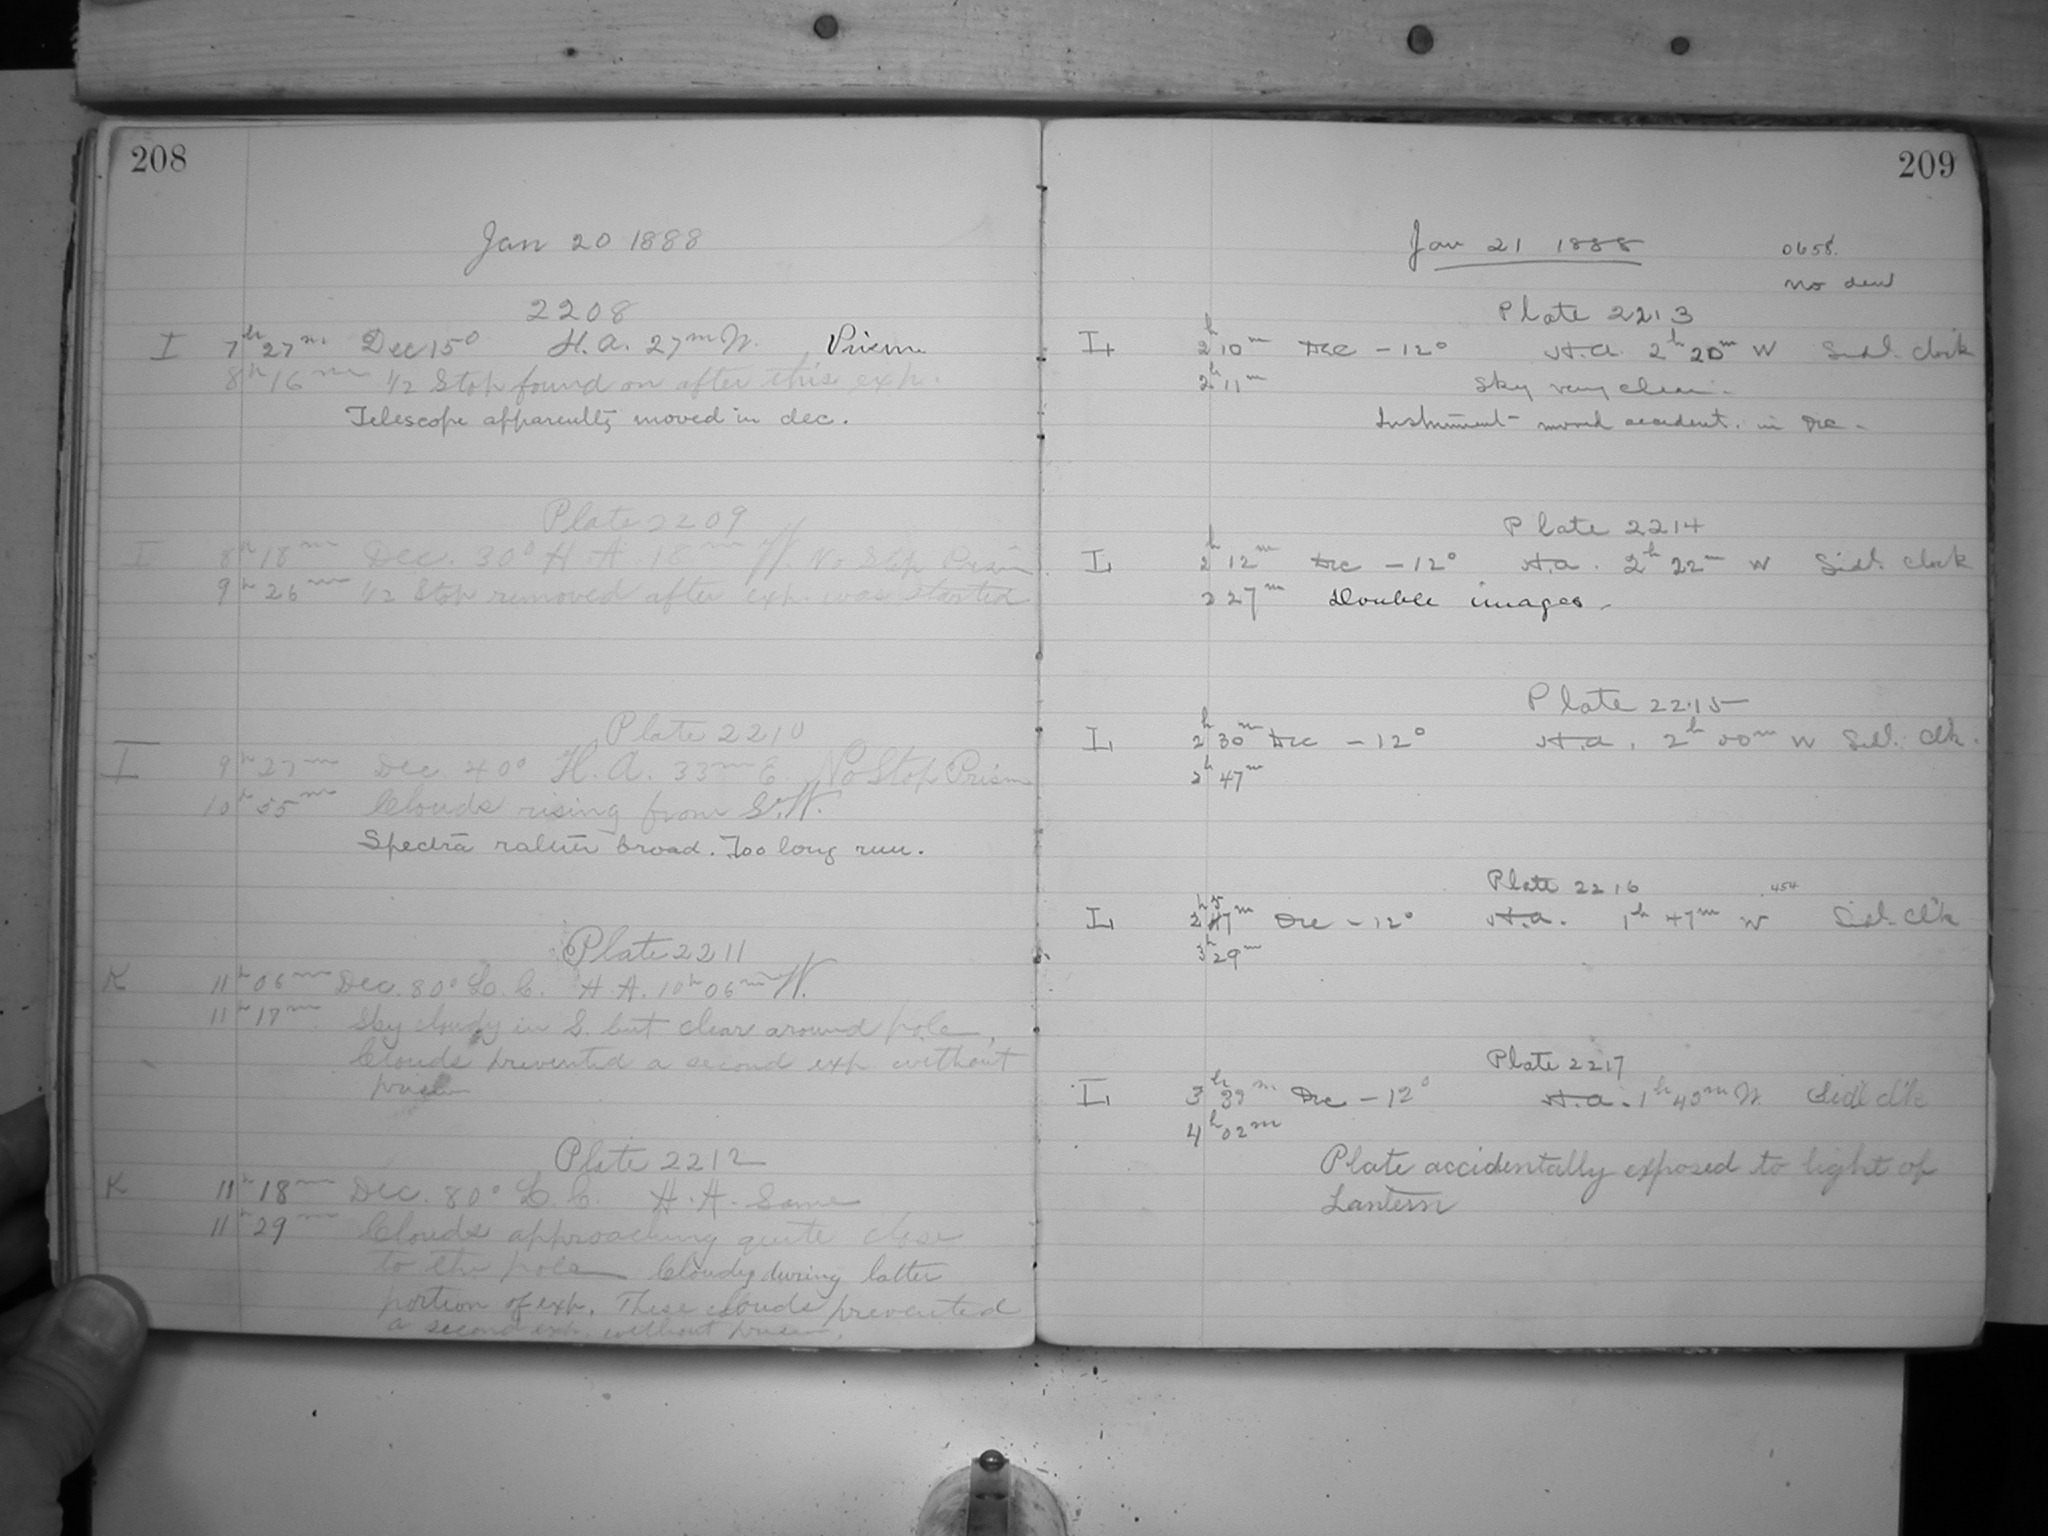 208
Jan 20 1888
2208
I 7h 27m Dec 15° H.A. 27m W. Prism
8h 16m 1/2 Stop found on after this exp.
Telescope apparently moved in dec.
Plate 2209
I 8h 18m Dec. 30° H A 18m W. No Stop Prism
9h 26m 1/2 Stop removed after exp. was started
Plate 2210
I 9h 27m Dec. 40° H.A. 33m E No Stop Prism
10h 55m Clouds rising from S.W.
Spectra rather broad. Too long run.
Plate 2211
K 11h 06m Dec. 80° L.C. H.A. 10h 06m W.
11h 17m Sky cloudy in S. but clear around pole,
Clouds prevented a second exp. without
prism
Plate 2212
K 11h 18m Dec. 80° L.C. H.A. Same
11h 29m Clouds approaching quite close
to the pole Cloudy during latter
portion of exp. These clouds prevented
a second exp. without prism.
209
Jan 21 1888 0658.
no dew
Plate 2213
I 2h 10m Dec -12° H.A. 2h 20m W Sidl. clock
2h 11m Sky very clear.
Instrument moved accident. in Dec.
Plate 2214
I 2h 12m Dec -12° H.A. 2h 22m W Sidl. clock
2 27m Double images.
Plate 2215
I 2h 30m Dec -12° H.A. 2h 00m W Sidl. clk.
2h 47m
Plate 2216 454
I 2h 7m Dec -12° H.A. 1h 47m W Sidl. clk
3h 29m
Plate 2217
I 3h 39m Dec -12° H.A. 1h 43m W. Sidl clk
4h 02m
Plate accidentally exposed to light of
Lantern